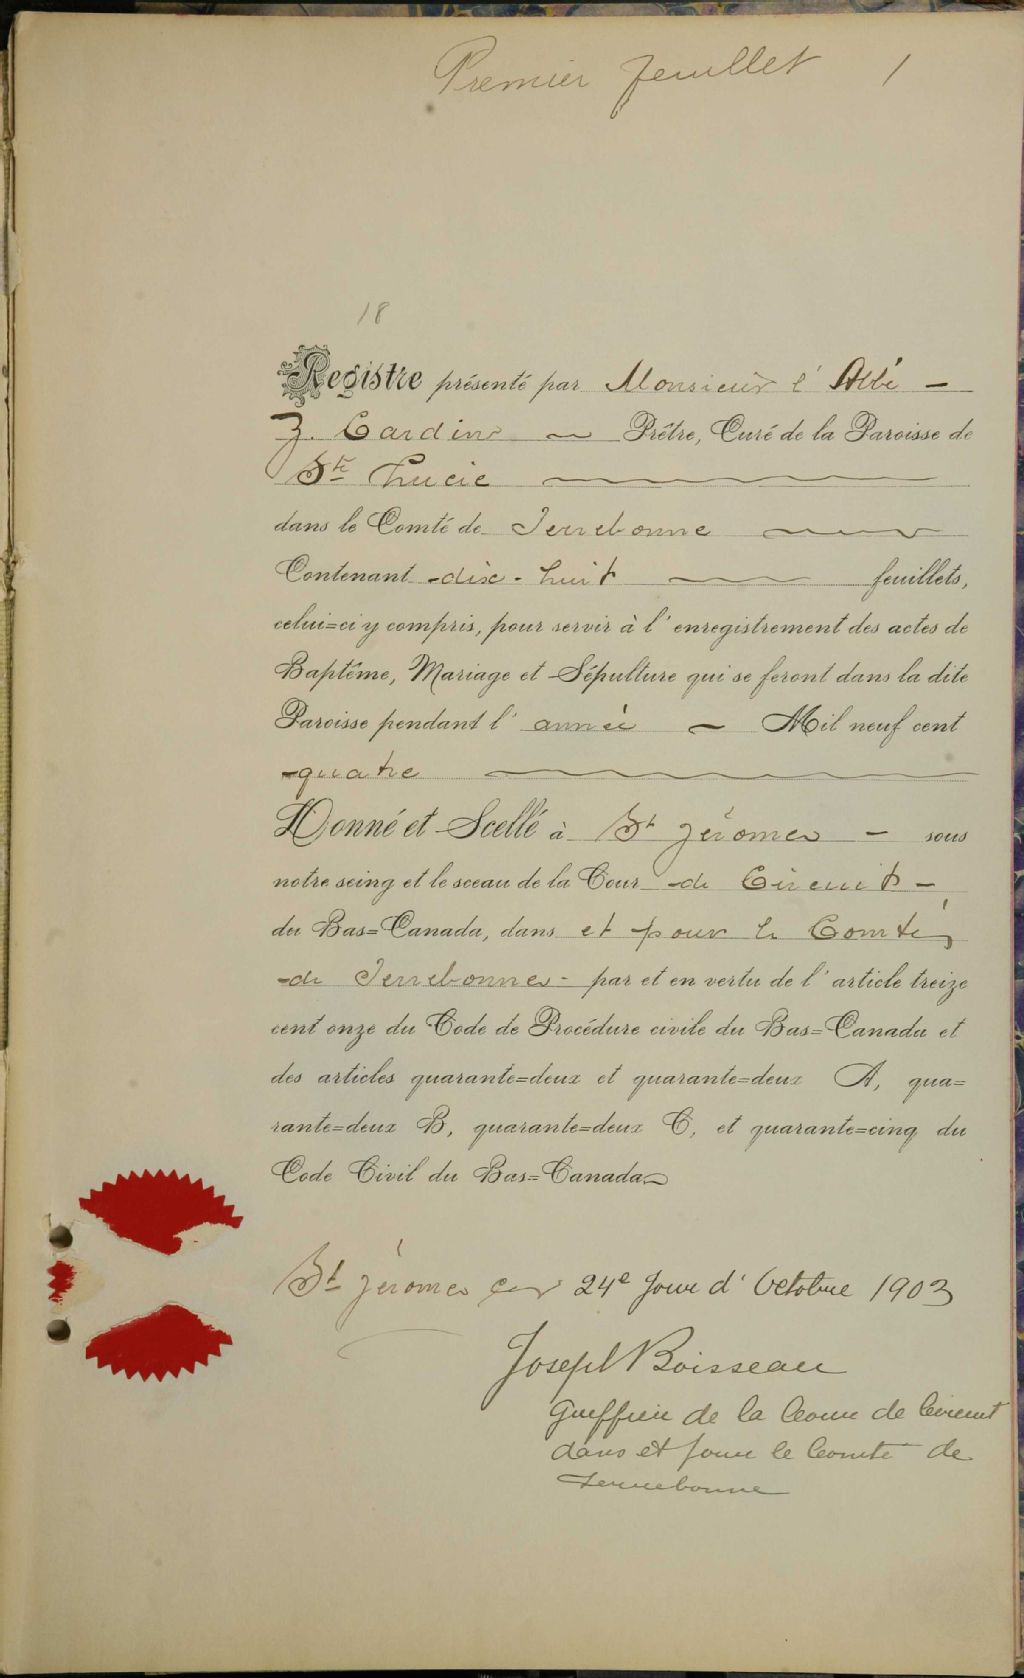 Premier feuillet 1
18
Registre présenté par Monsieur l'Abbé —
J. Cardin ~ Prêtre, Curé de la Paroisse de
Ste Lucie
dans le Comté de Terrebonne
Contenant dix-huit feuillets,
celui=ci y compris, pour servir à l'enregistrement des actes de
Baptême, Mariage et Sépulture qui se feront dans la dite
Paroisse pendant l'année ~ Mil neuf cent
quatre
Donné et Scellé à St Jérome — sous
notre seing et le sceau de la Cour de Circuit —
du Bas=Canada, dans et pour le Comté
de Terrebonne - par et en vertu de l'article treize
cent onze du Code de Procédure civile du Bas=Canada et
des articles quarante=deux et quarante=deux A, qua=
rante=deux B, quarante=deux C, et quarante=cinq du
Code Civil du Bas=Canada
St Jérome ce 24e Jour d'Octobre 1903
Joseph Boisseau
Greffier de la Cour de Circuit
dans et pour le Comté de
Terrebonne